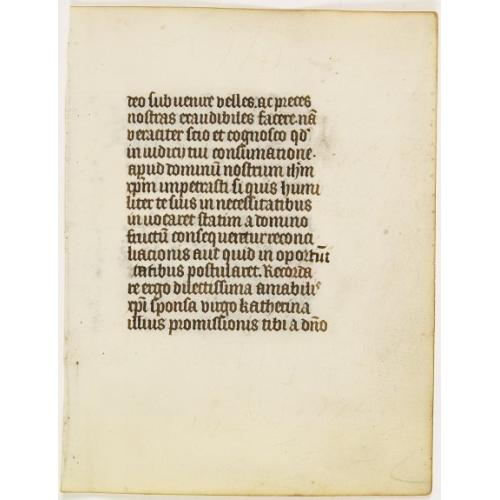 deo subuenire velles. ac preces
nostras exaudibiles facere. nā
veraciter scio et cognosco qd'
in iudicij tui consumatione.
apud dominū nostrum ihm
xpm impetrasti si quis humi
liter te suis in necessitatibus
inuocaret statim a domino
fructū consequeretur reconci
liacionis aut quid in oportūi
tatibus postularet. Recorda
re ergo dilectissima amabilis
xpi sponsa virgo katherina
illius promissionis tibi a dn̄o